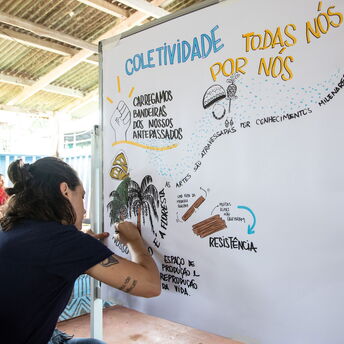 COLETIVIDADE
TODAS NÓS
POR NÓS
CARREGAMOS
BANDEIRAS
DOS NOSSOS
ANTEPASSADOS
AS ARTES SÃO ATRAVESSADAS POR CONHECIMENTOS MILENARES
É A FLORESTA
RESISTÊNCIA
ESPAÇO DE
PRODUÇÃO E
REPRODUÇÃO
DA VIDA.